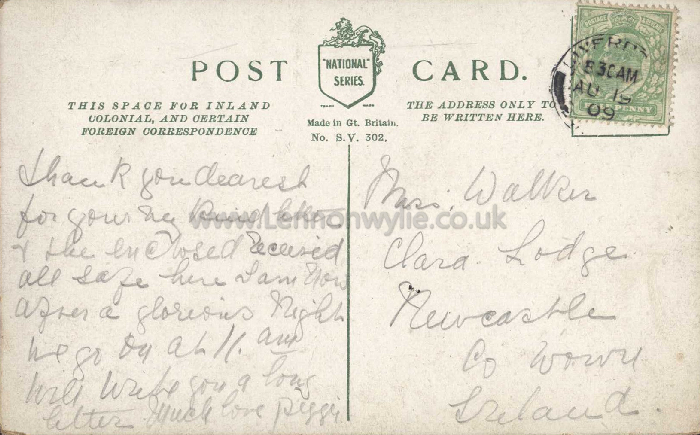 POST CARD.
"NATIONAL"
SERIES.
TRADE MARK
THIS SPACE FOR INLAND
COLONIAL, AND CERTAIN
FOREIGN CORRESPONDENCE
Made in Gt. Britain.
No. S.V. 302.
THE ADDRESS ONLY TO
BE WRITTEN HERE.
LIVERP
8 30 AM
AU 19
09
PENNY
www.Lennonwylie.co.uk
Thank you dearest
for your very kind letter
& the enclosed received
all safe here I am now
after a glorious night
we go on at 11. am
Will write you a long
letter Much love Peggie
Miss. Walker
Clara. Lodge
Newcastle
Co Down
Ireland.